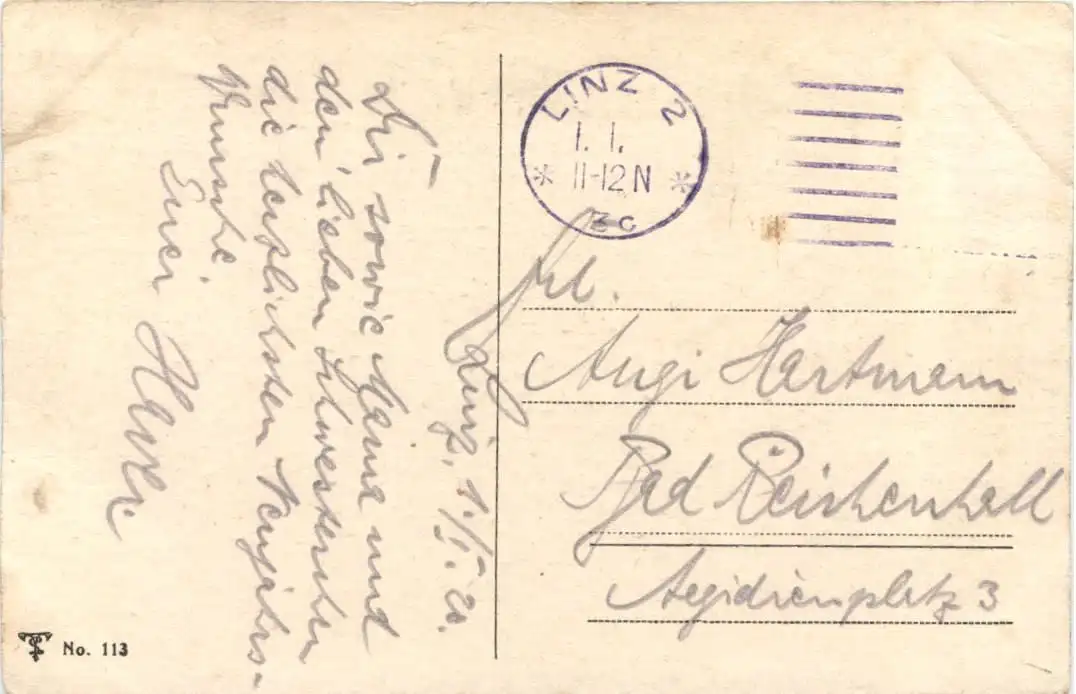 Linz, 1./I. 20.
Dir sowie Mama und
den lieben Schwesterchen
die herzlichsten Neujahrs-
wünsche
Euer
LINZ 2
1. 1.
* 11-12 N *
Frl.
Augi Hartmann
Bad Reichenhall
Aegidienplatz 3
No. 113